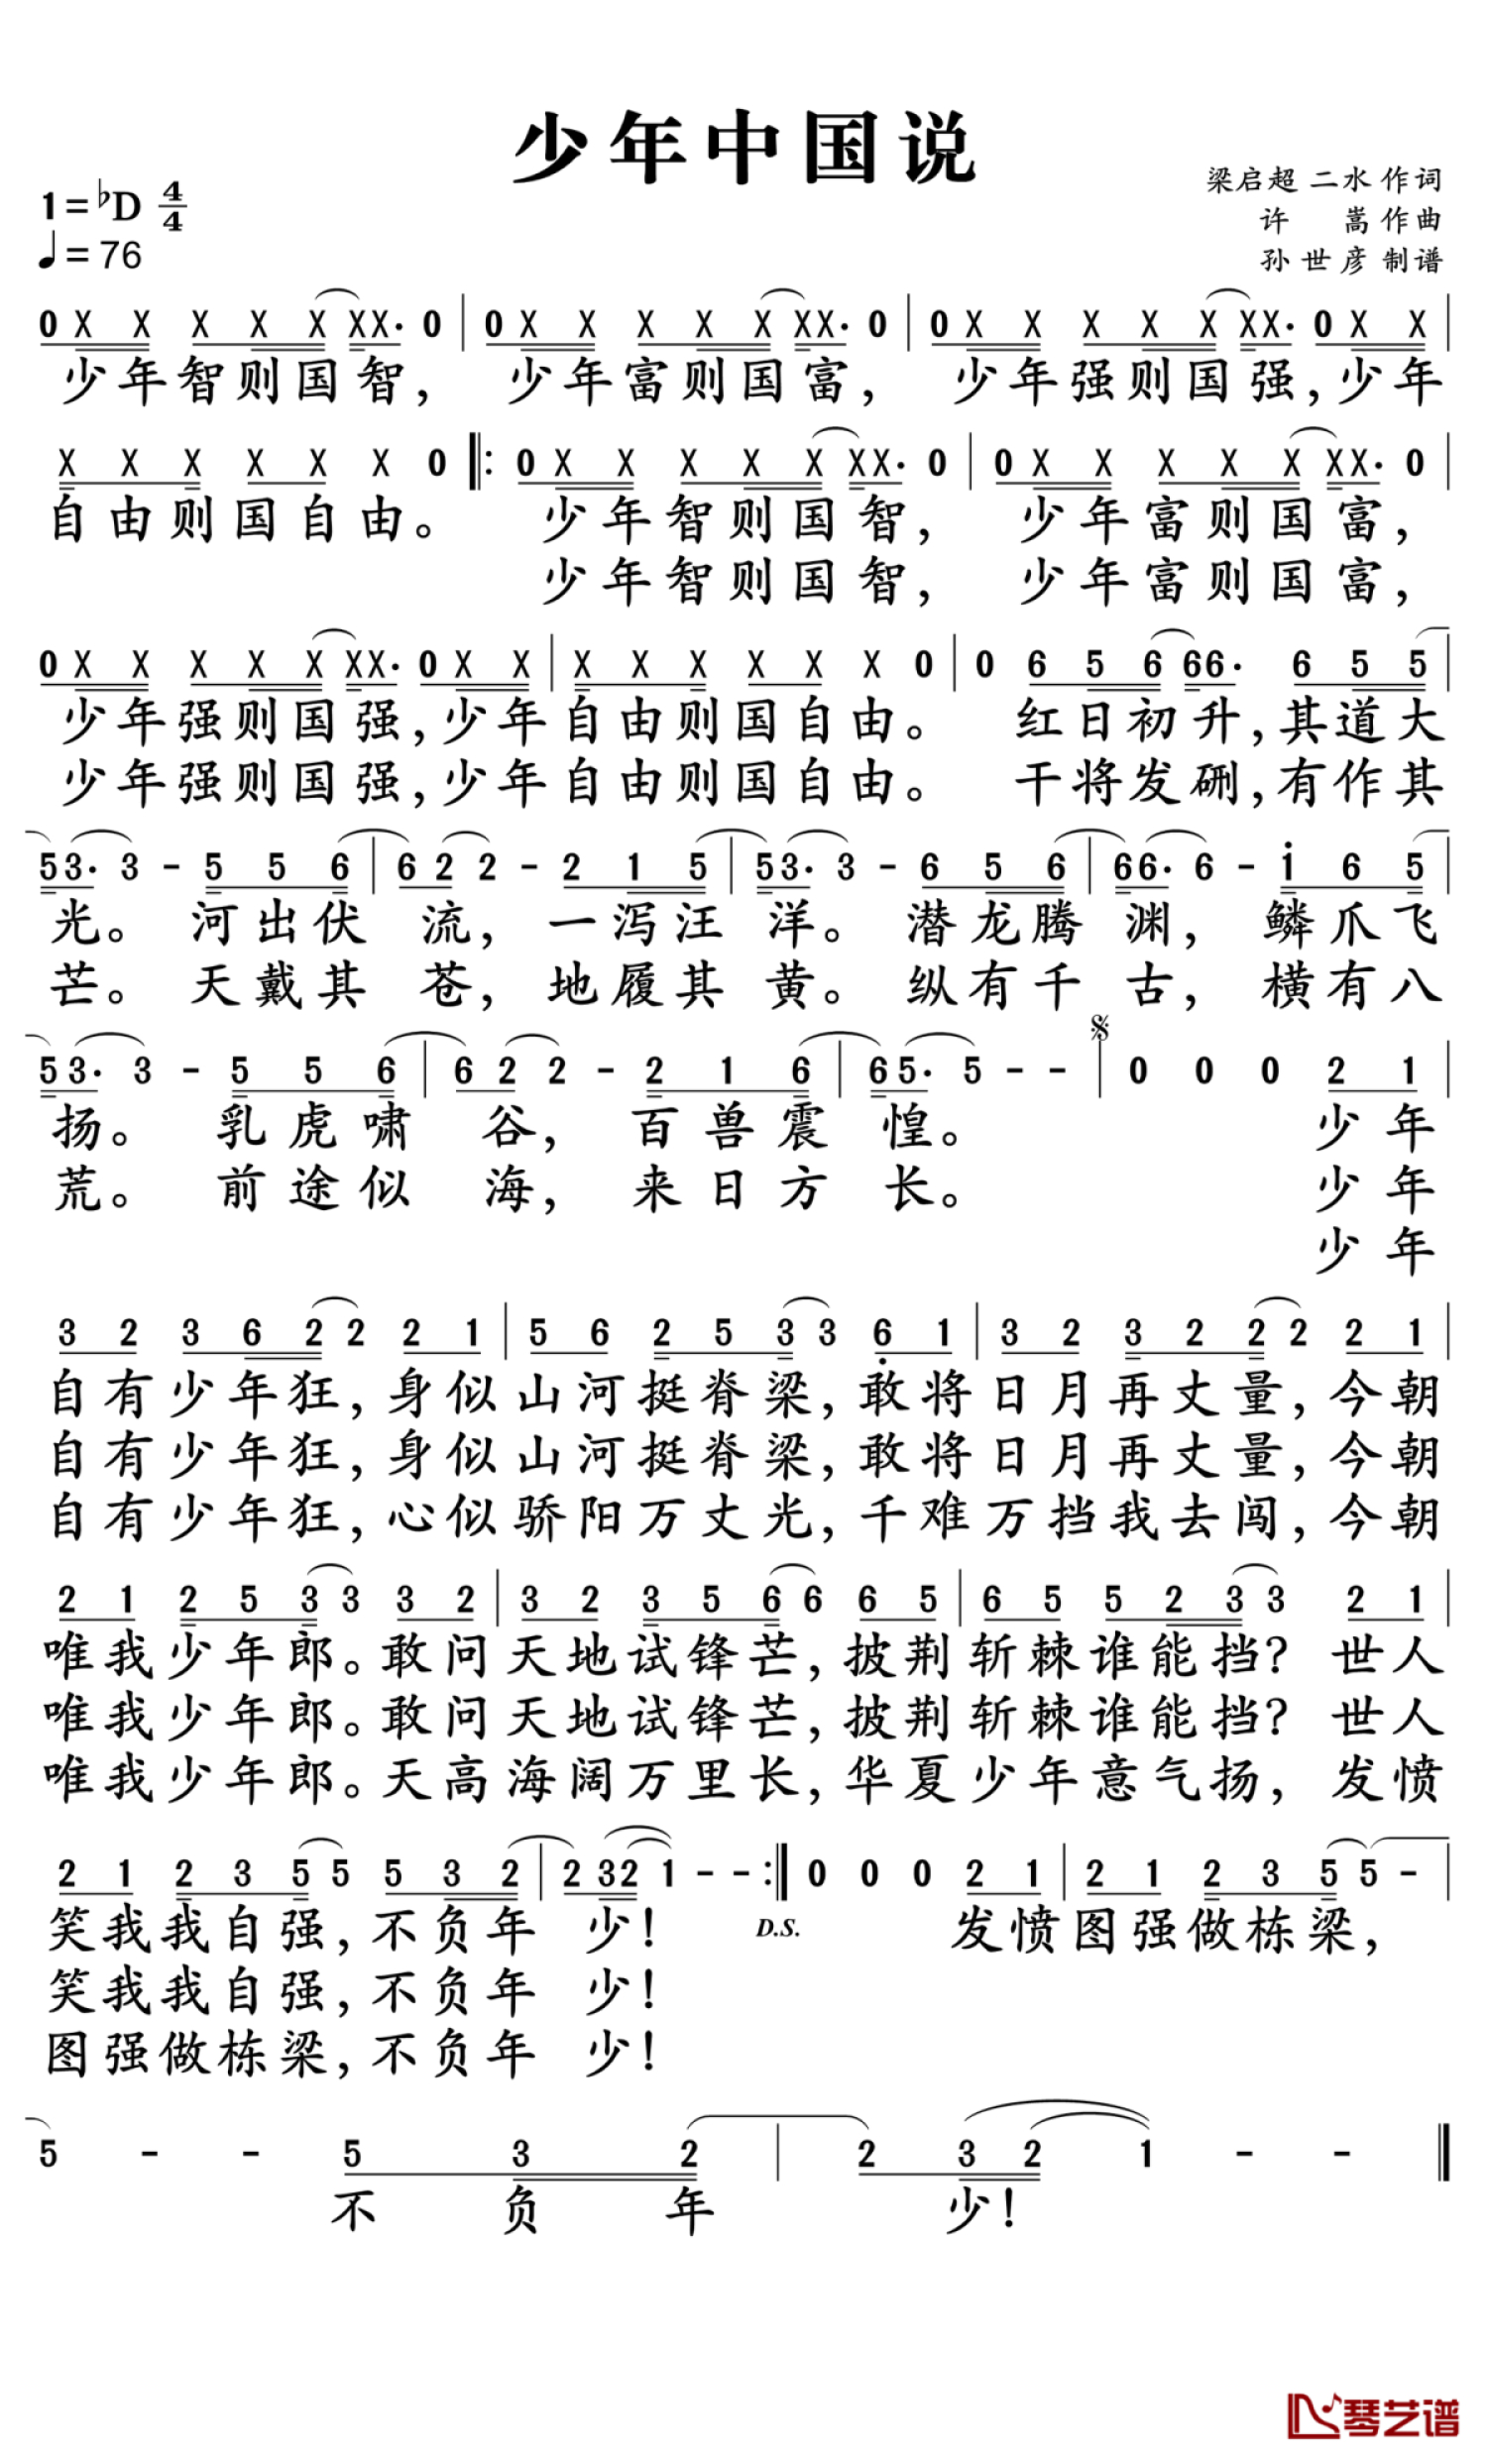 少年中国说
1=♭D 4/4
梁启超 二水 作词
许 嵩 作曲
♩=76
孙世彦 制谱
0 X X X X X XX. 0 | 0 X X X X X XX. 0 | 0 X X X X X XX. 0 X X |
少年智则国智, 少年富则国富, 少年强则国强,少年
X X X X X X 0 |: 0 X X X X X XX. 0 | 0 X X X X X XX. 0 |
自由则国自由。 少年智则国智, 少年富则国富,
少年智则国智, 少年富则国富,
0 X X X X X XX. 0 X X | X X X X X X 0 | 0 6 5 6 66. 6 5 5 |
少年强则国强,少年自由则国自由。 红日初升,其道大
少年强则国强,少年自由则国自由。 干将发硎,有作其
53. 3 - 5 5 6 | 6 2 2 - 2 1 5 | 53. 3 - 6 5 6 | 66. 6 - 1 6 5 |
光。 河出伏 流, 一泻汪 洋。 潜龙腾 渊, 鳞爪飞
芒。 天戴其 苍, 地履其 黄。 纵有千 古, 横有八
53. 3 - 5 5 6 | 6 2 2 - 2 1 6 | 65. 5 - - | 0 0 0 2 1 |
扬。 乳虎啸 谷, 百兽震 惶。 少年
荒。 前途似 海, 来日方 长。 少年
少年
3 2 3 6 2 2 2 1 | 5 6 2 5 3 3 6 1 | 3 2 3 2 2 2 2 1 |
自有少年狂,身似山河挺脊梁,敢将日月再丈量,今朝
自有少年狂,身似山河挺脊梁,敢将日月再丈量,今朝
自有少年狂,心似骄阳万丈光,千难万挡我去闯,今朝
2 1 2 5 3 3 3 2 | 3 2 3 5 6 6 6 5 | 6 5 5 2 3 3 2 1 |
唯我少年郎。敢问天地试锋芒,披荆斩棘谁能挡? 世人
唯我少年郎。敢问天地试锋芒,披荆斩棘谁能挡? 世人
唯我少年郎。天高海阔万里长,华夏少年意气扬, 发愤
2 1 2 3 5 5 5 3 2 | 2 32 1 - - :| 0 0 0 2 1 | 2 1 2 3 5 5 - |
笑我我自强,不负年 少! D.S. 发愤图强做栋梁,
笑我我自强,不负年 少!
图强做栋梁,不负年 少!
5 - - 5 3 2 | 2 3 2 1 - - ‖
不 负 年 少!
琴艺谱